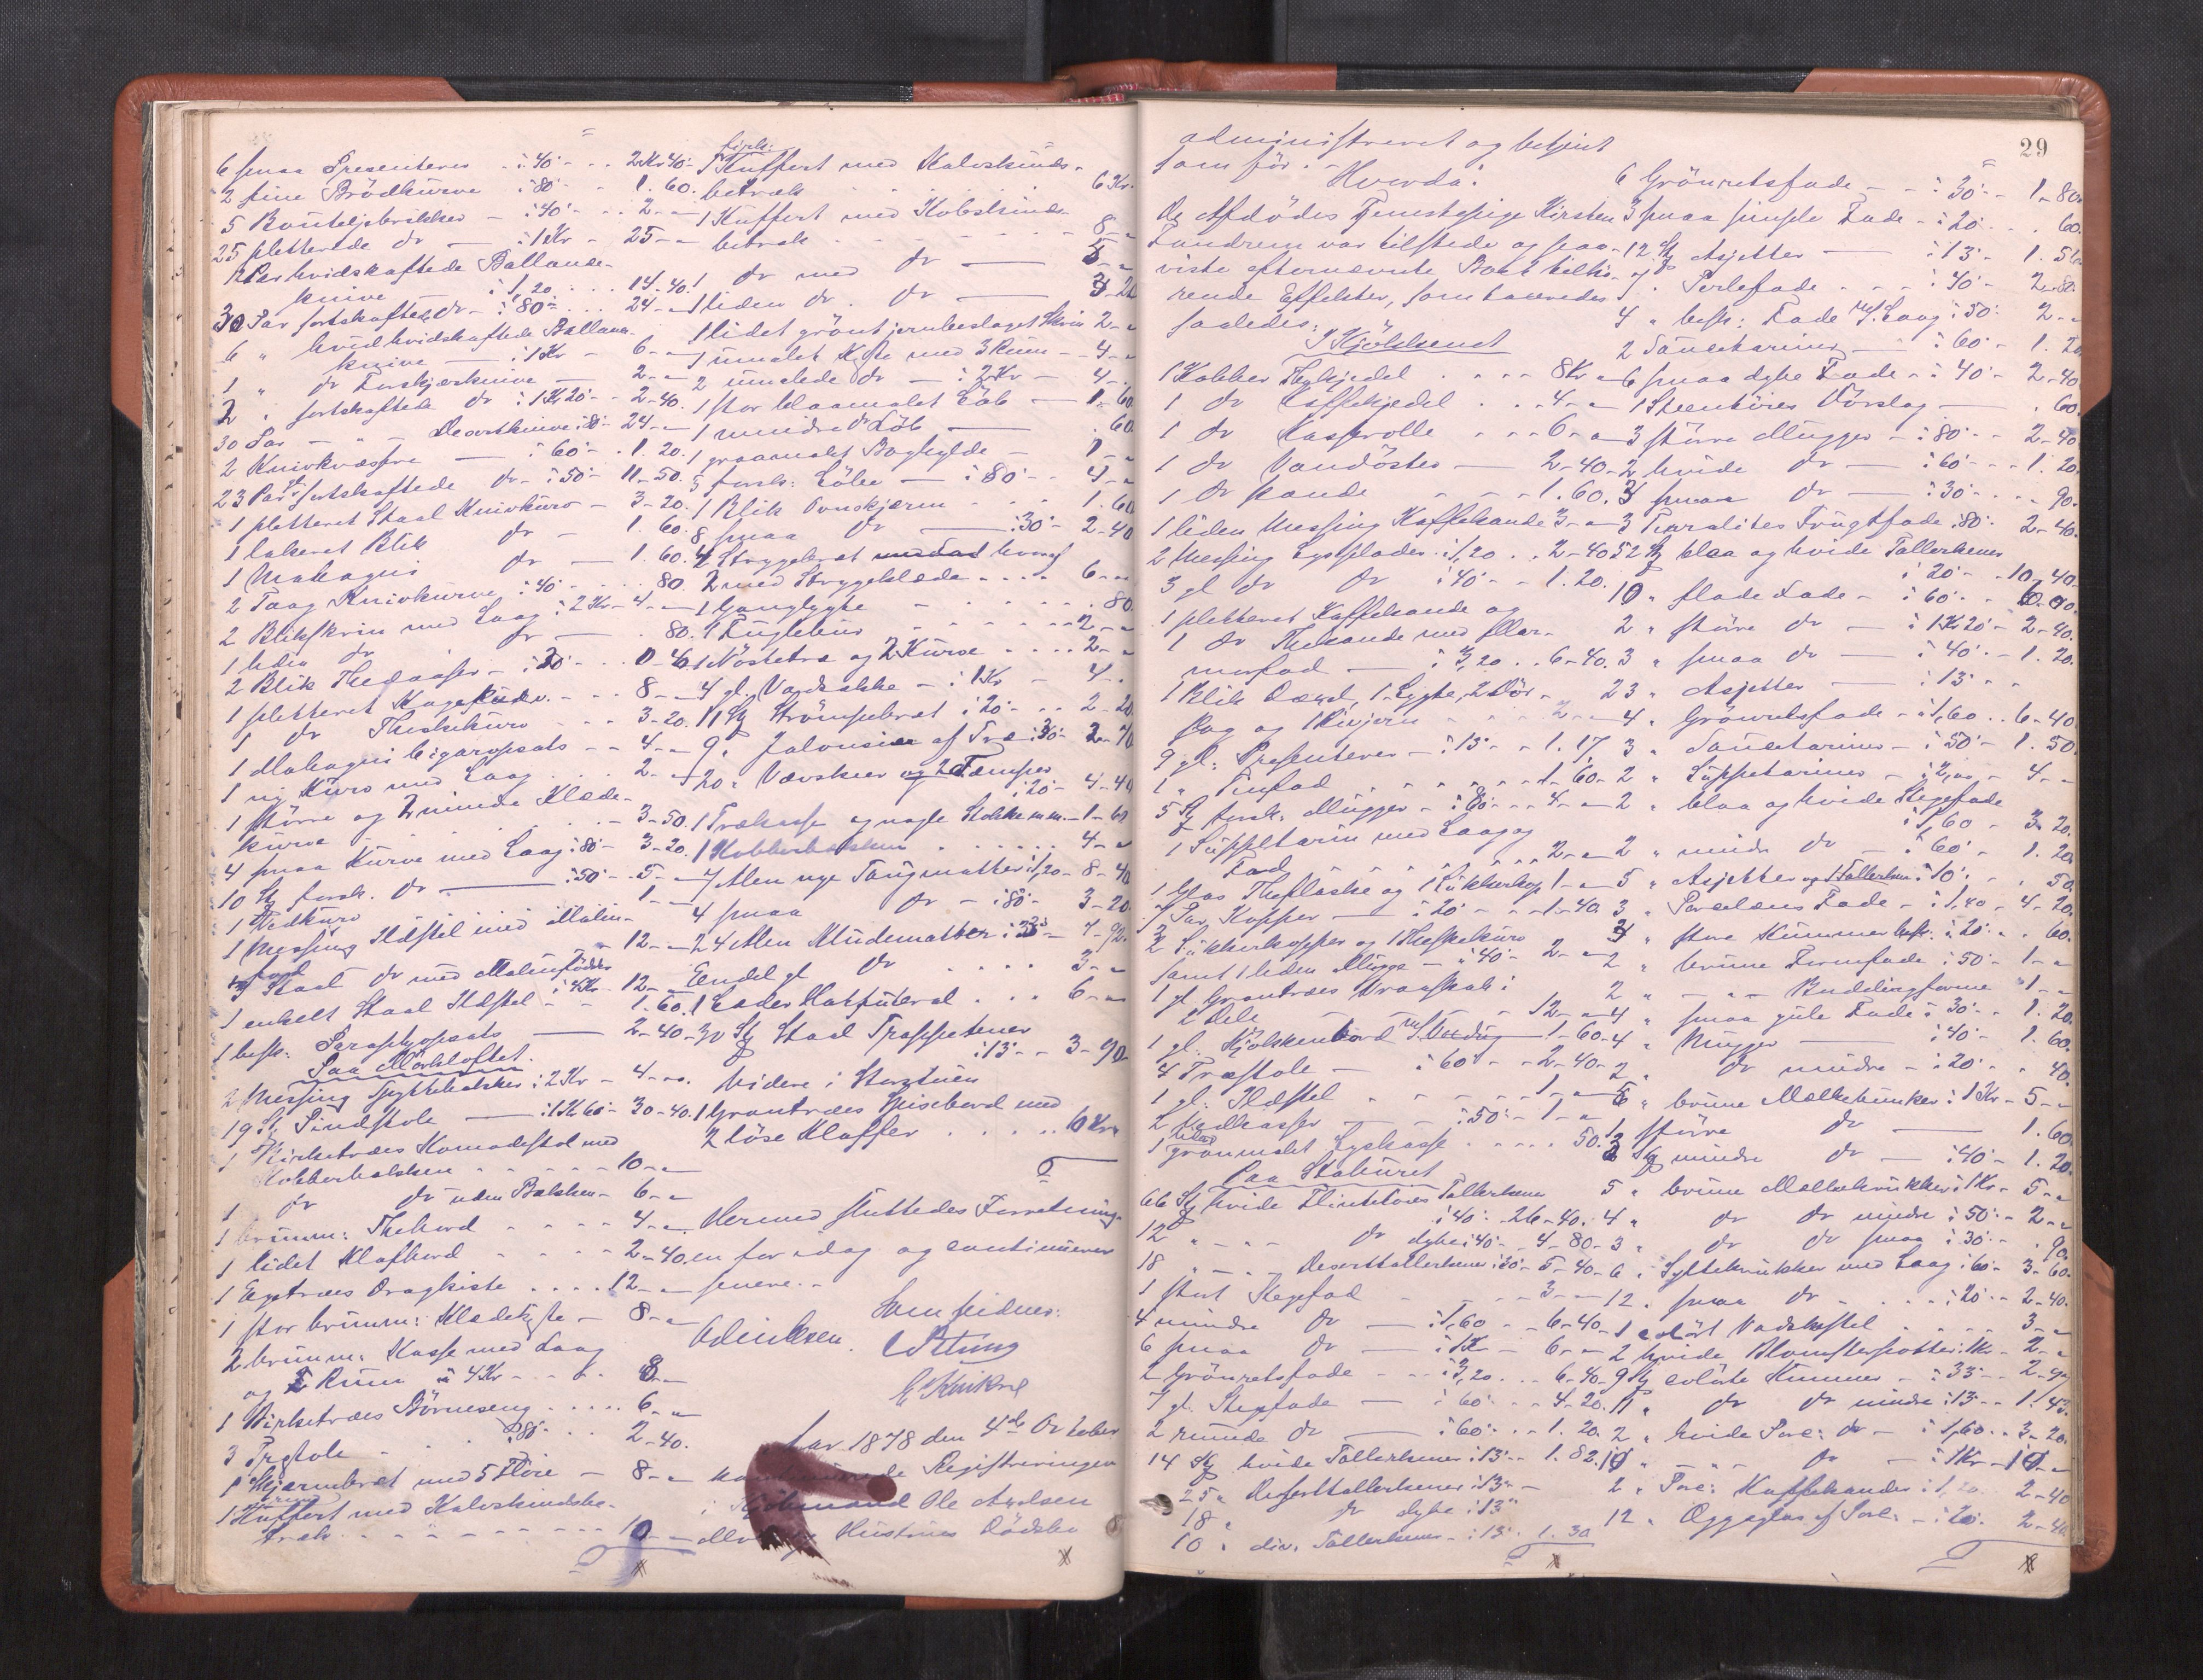 6 smaa Presenteres - : 40 - - 2 Kr 40 -
2 fine Brödkurve : 80 - 1. 60.
5 Bouteljebrikker - : 40 - - 2 - -
25 pletterede dr - : 1 Kr - 25 - -
12 Par hvidskaftede Ballance-
knive - : 1,20 . . 14.40.
30 Par sortskaftede dr - : 80 - 24 - -
6 " hvidskaftede Ballance-
knive - : 1 Kr - 6 - -
1 " dr Forskjærknive - 2 - -
2 " sortskaftede dr : 1 Kr 20 - 2 - 40.
30 Par - " - Desertknive : 80 - 24 - -
2 Knivhvæssere - : 60 - . 1. 20.
23 Par sortskaftede dr - : 50 - 11 - 50.
1 pletteret Staal Knivkurv - 3 - 20.
1 lakeret Blik dr - 1. 60.
1 Mahogni dr - 1. 60.
2 Taag Knivkurve : 40 - . . 80.
2 Blikskrin med Laag : 2 Kr - 4 - -
1 liden dr dr - . 80.
2 Blik Thedaaser - : 20 - . . 0 - 40
1 pletteret Kagekurv - - 8 - -
1 dr Theskekurv - - 3 - 20.
1 Mahogni Cigaropsats - - 4 - -
1 ny Kurv med Laag . . 2 - -
1 större og 2 mindre Klæde-
kurve - 3 - 50.
4 smaa Kurve med Laag : 80 - 3 - 20.
10 St forsk. dr - : 50 - 5 - -
1 Vedkurv 1 - -
1 Messing Ildstel med Malm-
fod - 12 - -
3 Staal dr med Malmfödder
: 4 Kr - 12 - -
1 enkelt Staal Ildstel - - 1. 60.
1 besk: Paraplyopsats - 2 - 40 -
Paa Mörkloftet.
2 Messing Spyttebakker : 2 Kr - 4 - -
19 St Pindstole - : 1 Kr 60 - 30 - 40.
1 Birketræes Komodestol med
Kobberbækken - - - - - 10 - -
1 dr dr uden Bækken - 6 - -
1 brunm: Thebord - - - - 4 - -
1 lidet Klafbord - - - - 2 - 40.
1 Egetræes Dragkiste . . . . 12 - -
1 stor brunm: Klædekiste - 8 - -
2 brunm. Kasse med Laag
og 2 Rum à 4 Kr - - - 8 - -
1 Birketræes Börneseng . . . . 6 - -
3 Træstole - . . : 80 - . . 2 - 40.
1 Skjærmbræt med 5 Flöie - 8 - -
1 Kuffert med Kalveskindsbe-
træk - - - - - - - - - 10 - -
1 Kuffert med Kalveskinds-
betræk - - 6 Kr.
1 Kuffert med Kobeskinds-
betræk - - - - - - 8 - -
1 dr med dr - 5 - -
1 liden dr . dr - 3 - 20
1 lidet grönt jernbeslaget Skrin 2 - -
1 umalet Kiste med 3 Rum - 4 - -
2 umalede dr - : 2 Kr - 4 - .
1 stor blaamalet Löb - 1 - 60
1 mindre dr Löb - . 60.
1 graamalet Boghylde - 1 - -
5 forsk: Löbe - : 80 - - 4 - -
1 Blik Ovnskjærm - - 1. 60
8 smaa dr - : 30 - 2 - 40
4 Strygebræt hvoraf
2 med Strygeklæde . . . . 6 - -
1 Ganglygte - . . . . . 80.
1 Fuglebur - - - - - - 2 - -
1 Nöstetræ og 2 Kurve . . . . 2 - -
4 gl. Vadsække - : 1 Kr - 4 - .
11 St Strömpebræt : 20 - . . 2 - 20
9 " Jalousier af Træ : 30 - 2 - 70
20 " Vævskeer og 2 Tæmper
: 20 - 4 - 40
1 Trækasse og nogle Stokke m.m. - 1 - 60
1 Kobberbækken . . . . . 4 - -
7 Alen nye Taugmatter : 1,20 - 8 - 40
4 smaa dr - : 80 - 3 - 20.
24 Alen Kludematter : 33 - 7 - 92.
Eendel gl dr . . . . 3 - -
1 Læder Hatfuteral . . . 6 - -
30 St Staal Trappstenger
: 13 - - 3 - 90
Videre i Storstuen
1 Grantræes Spisebord med
2 löse Klaffer . . . . . 10 Kr.
Hermed sluttedes Forretning-
en for idag og continueres
senere. -
Som Vidner:
Aar 1878 den 4de October
Registreringen
i Kjöbmand Ole Axelsen
Hustrues Dödsbo
29
administreret og betjent
som för. -
Hvorda:
Og Afdödes Tjenestepige Kirsten
Tandrem var tilstede og paa-
viste efternævnte Boet tilhö-
rende Effekter, som taxeredes
saaledes:
I Kjökkenet
1 Kobber Thekjedel . - - . 8 Kr -
1 dr Kaffekjedel . . . 4 - -
1 dr Kasserolle - - - 6 - -
1 dr Vandöster - 2 - 40 -
1 dr pande - - - 1. 60.
1 liden Messing Kaffekande 3 - -
2 Messing Lysplader : 1,20 . . 2 - 40
3 gl dr dr : 40 - - 1. 20.
1 pletteret Kaffekande og
1 dr Thekande med Mar-
morfad - : 3,20 . . 6 - 40.
1 Blik 1 Lygte, 2 Dör-
slag og 1 Rivjern - - - 2 - -
9 gl: Presenterer - : 13 - - 1. 17,
1 " Tinfad . . . . . . 1 - 60 -
5 St forsk. Mugger - : 80 - - 4 - -
1 Suppeterin med Laag og
Fad - - - - - - - - 2 - -
1 Glas Theflaske og 1 Sukkerkop 1 - -
7 Par Kopper - : 20 - - 1 - 40.
2 Sukkerkopper og 1 Theskekurv
samt 1 liden Mugge - : 40 - 2 - -
1 gl. Grantræes Vraaskab i
2 Dele - - - 12 - -
1 gl. Kjökkenbord - 1 - 60 -
4 Træstole - : 60 - - 2 - 40 -
1 gl: Ildstel - - - - 1 - -
2 Vedkasser - : 50 - 1 - -
1 grönmalet Lyskasse . . . . 50.
Paa Stabburet
66 St hvide Flintetöies Tallerkener
: 40 - 26 - 40.
12 " - " - dr dybe : 40 - . 4 - 80 -
18 " - " - Deserttallerkener : 30 - 5 - 40 -
1 stort Stegefad - - - 3 - -
4 mindre dr - : 1,60 - - 6 - 40 -
6 smaa dr - : 1 Kr - 6 - -
2 Grönretsfade - - : 3,20 . . 6 - 40 -
7 gl. Stegefade - : 60 - - 4 - 20.
2 runde dr - : 60 - . 1. 20.
14 St hvide Tallerkener : 13 - - 1. 82.
25 " Deserttallerkener : 13 -
18 " dr dybe : 13 "
10 " div. Tallerkener - : 13 - 1. 30
6 Grönretsfade - - : 30 - - 1 - 80.
3 smaa simple Fade - : 20 . . . 60.
12 St Asjetter - : 13 - 1. 56
7 " Perlefade - - - : 40 - 2 - 80.
4 " besk: Fade m/ Laag : 50 - 2 - -
2 Sausetariner - : 60 - 1. 20
6 smaa dybe Fade - : 40 - 2 - 40
1 Steentöies Dörslag - . 60.
3 större Mugger - : 80 - - 2 - 40
2 hvide dr - : 60 - - 1. 20.
3 smaa dr - : 30 - . . . 90.
3 Frugtfade : 80 - 2 - 40.
52 St blaa og hvide Tallerkener
: 20 - - 10 - 40.
10 " flade Fade - : 60 - - 6 - 00.
2 " större dr - : 1 Kr 20 - 2 - 40.
3 " smaa dr - : 40 - - 1. 20.
23 " Asjetter - : 13 - -
4 " Grönretsfade - : 1,60 . . 6 - 40
3 " Sausetariner - : 50 - 1. 50.
2 " Suppetariner - : 2,00 - 4 - -
2 " blaa og hvide Stegefade
: 1,60 - 3. 20.
2 " mindre dr - : 60 - 1. 20
5 " Asjetter og Tallerken : 10 - - . 50.
3 " Porcelæns Fade - : 1,40 - 4 - 20.
3 " store Kummer besk. : 20 - . . 60.
2 " brune Formfade : 50 - 1 - -
2 " - " - Buddingforme " 1 - -
4 " smaa gule Fade : 30 - - 1. 20.
4 " Mugger - : 40 - 1. 60.
2 " dr mindre - : 20 - . . 40.
5 " brune Melkebunker : 1 Kr - 5 - -
1 större dr - 1. 60.
3 St mindre dr - : 40 - 1. 20.
5 " brune Melkekrukker : 1 Kr - 5 - -
4 " dr dr mindre : 50 - - 2 - -
3 " dr dr smaa : 30 - . 90.
6 " Syltekrukker med Laag : 60 - 3 - 60.
12 " smaa dr - - . : 20 - - 2 - 40.
1 colört Vadskestel . . . . . 3 - -
2 hvide Blomsterpotter : 1 Kr - 2 - -
9 St colörte Kummer - : 33 - - 2 - 97
11 " dr dr mindre : 13 - - 1. 43.
2 " hvide Porc: dr - : 1,60 . . 3 - 20.
10 " - " - dr - : 1 Kr - 10 - -
2 " Porc: Kaffekander : 1,20 2 - 40
12 " Æggeglas af Porc. - : 20 - 2 - 40